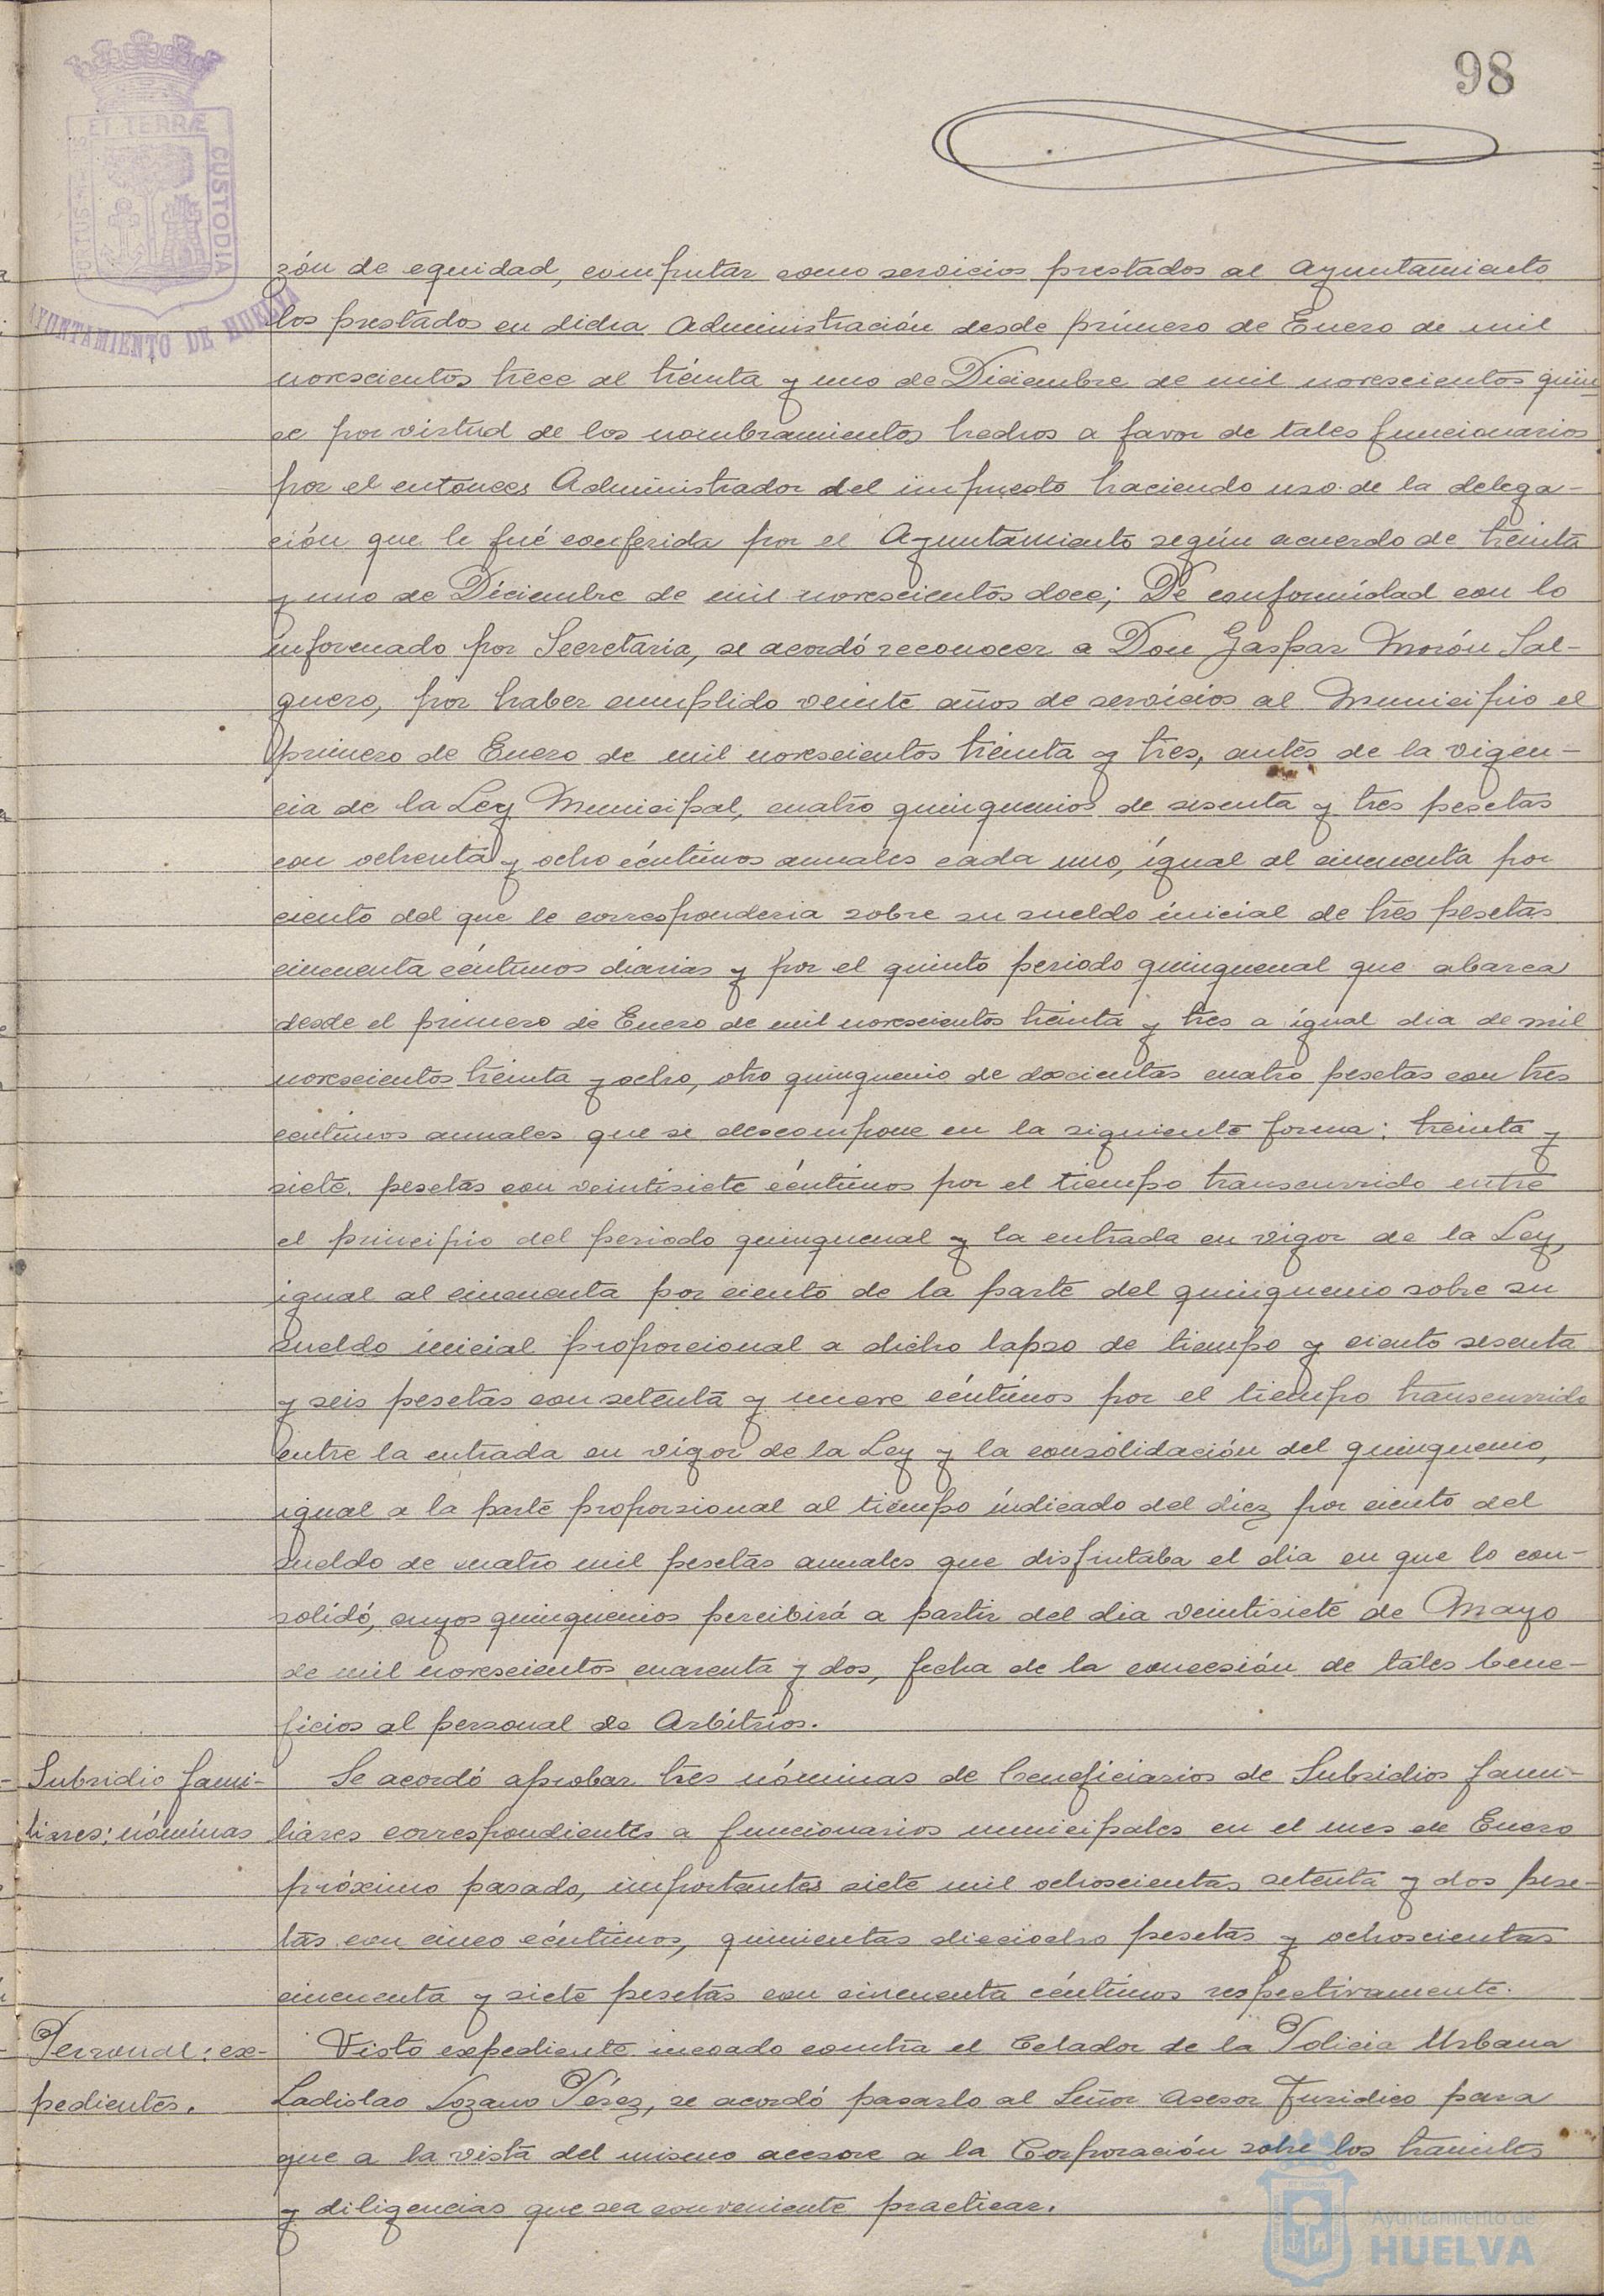 98
ET TERRÆ
CUSTODIA
PORTUS MARIS
AYUNTAMIENTO DE HUELVA
zón de equidad, computar como servicios prestados al Ayuntamiento
los prestados en dicha Administración desde primero de Enero de mil
novescientos trece al treinta y uno de Diciembre de mil novescientos quin-
ce por virtud de los nombramientos hechos a favor de tales funcionarios
por el entonces Administrador del impuesto haciendo uso de la delega-
ción que le fué conferida por el Ayuntamiento según acuerdo de treinta
y uno de Diciembre de mil novescientos doce; De conformidad con lo
informado por Secretaria, se acordó reconocer a Don Gaspar Morón Sal-
guero, por haber cumplido veinte años de servicios al Municipio el
primero de Enero de mil novescientos treinta y tres, antes de la vigen-
cia de la Ley Municipal, cuatro quinquenios de sesenta y tres pesetas
con ochenta y ocho céntimos anuales cada uno, igual al cincuenta por
ciento del que le corresponderia sobre su sueldo inicial de tres pesetas
cincuenta céntimos diarias y por el quinto periodo quinquenal que abarca
desde el primero de Enero de mil novescientos treinta y tres a igual dia de mil
novescientos treinta y ocho, otro quinquenio de doscientas cuatro pesetas con tres
centimos anuales que se descompone en la siguiente forma: treinta y
siete pesetas con veintisiete céntimos por el tiempo transcurrido entre
el principio del periodo quinquenal y la entrada en vigor de la Ley,
igual al cincuenta por ciento de la parte del quinquenio sobre su
sueldo inicial proporcional a dicho lapso de tiempo y ciento sesenta
y seis pesetas con setenta y nueve céntimos por el tiempo transcurrido
entre la entrada en vigor de la Ley y la consolidación del quinquenio,
igual a la parte proporsional al tiempo indicado del diez por ciento del
sueldo de cuatro mil pesetas anuales que disfrutaba el dia en que lo con-
solidó, cuyos quinquenios percibirá a partir del dia veintisiete de Mayo
de mil novescientos cuarenta y dos, fecha de la concesión de tales bene-
ficios al personal de Arbitrios.
Subsidio fami-
liares: nóminas
Se acordó aprobar tres nóminas de beneficiarios de Subsidios fami-
liares correspondientes a funcionarios municipales en el mes de Enero
próximo pasado, importantes siete mil ochoscientas setenta y dos pese-
tas con cinco céntimos, quinientas dieciocho pesetas y ochoscientas
cincuenta y siete pesetas con cincuenta céntimos respectivamente.
Personal: ex-
pedientes.
Visto expediente incoado contra el Celador de la Policia Urbana
Ladislao Lozano Pérez, se acordó pasarlo al Señor Asesor Juridico para
que a la vista del mismo acesore a la Corporación sobre los tramites
y diligencias que sea conveniente practicar.
Ayuntamiento de
HUELVA